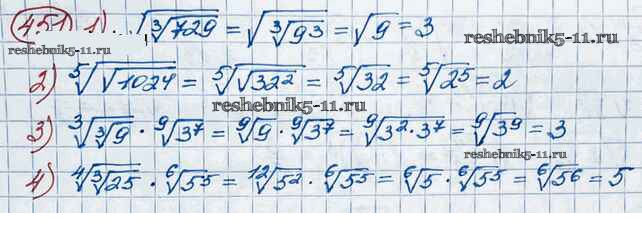 451 1). √∛729 = √∛9³ = √9 = 3
reshebnik5-11.ru reshebnik5-11.ru
2) ⁵√√1024 = ⁵√√32² = ⁵√32 = ⁵√2⁵ = 2
reshebnik5-11.ru
3) ³√³√9 · ⁹√3⁷ = ⁹√9 · ⁹√3⁷ = ⁹√3²·3⁷ = ⁹√3⁹ = 3
reshebnik5-11.ru
4) ⁴√³√25 · ⁶√5⁵ = ¹²√5² · ⁶√5⁵ = ⁶√5 · ⁶√5⁵ = ⁶√5⁶ = 5
reshebnik5-11.ru